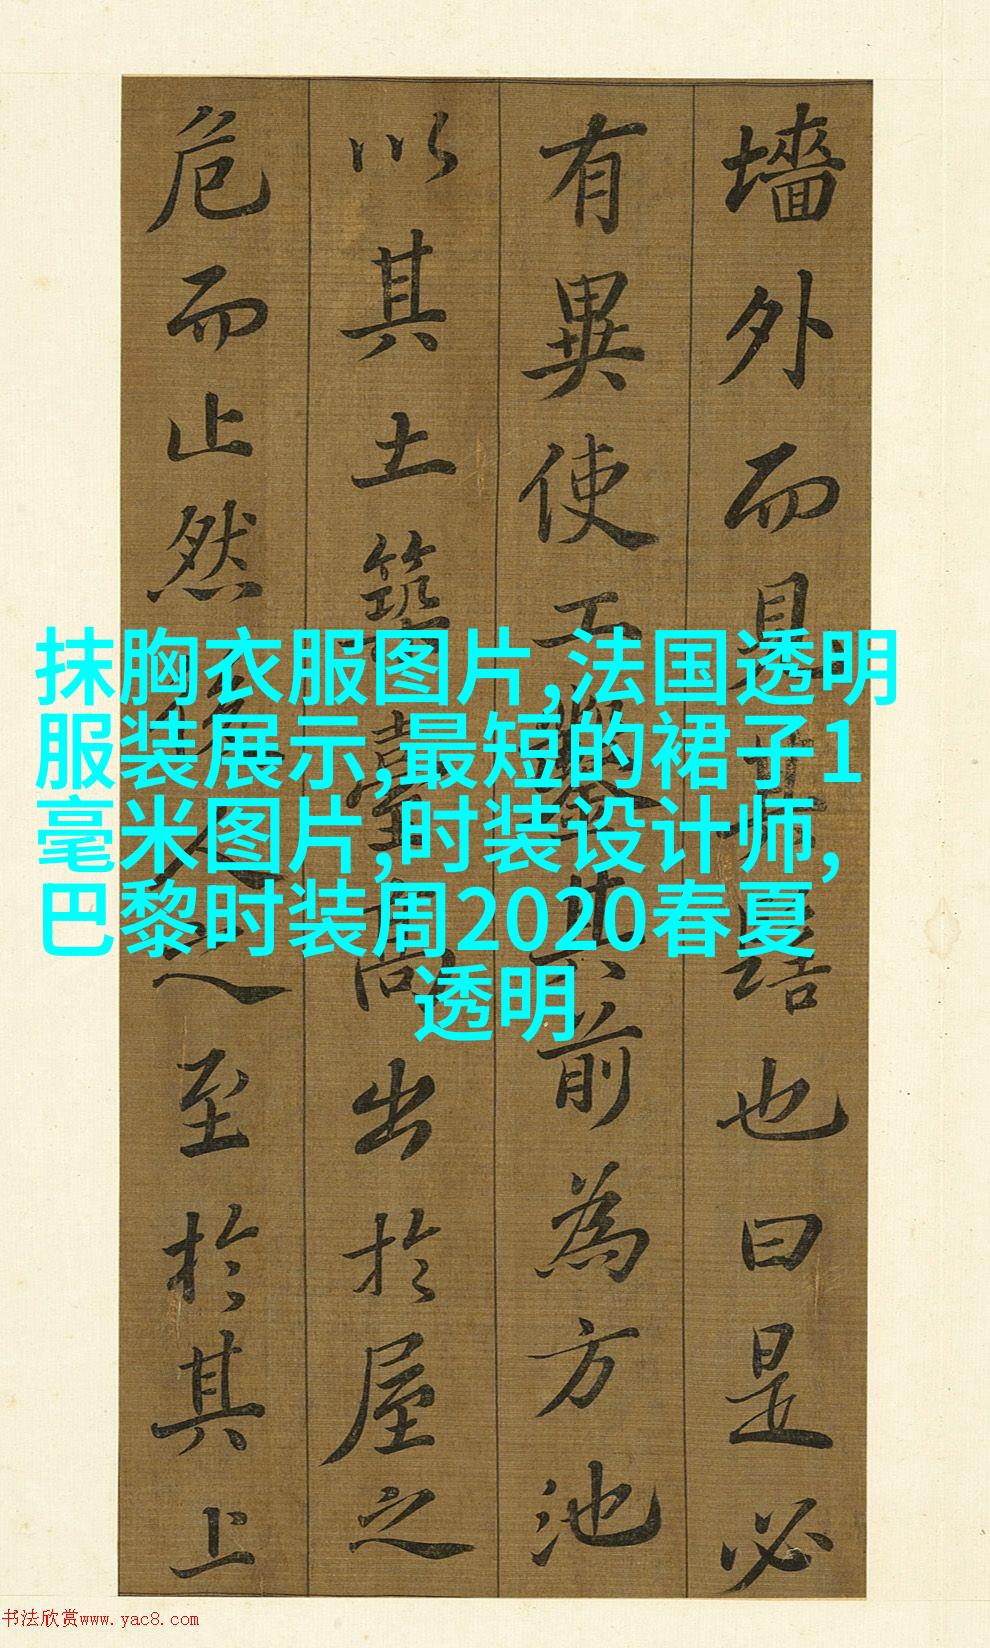 墻外而見其髻也曰是必
有異使工鑿其前為方池
以其土築臺高出於屋之
危而止然後人之至於其上
抹胸衣服图片,法国透明
服装展示,最短的裙子1
毫米图片,时装设计师,
巴黎时装周2020春夏
透明
书法欣赏www.yac8.com